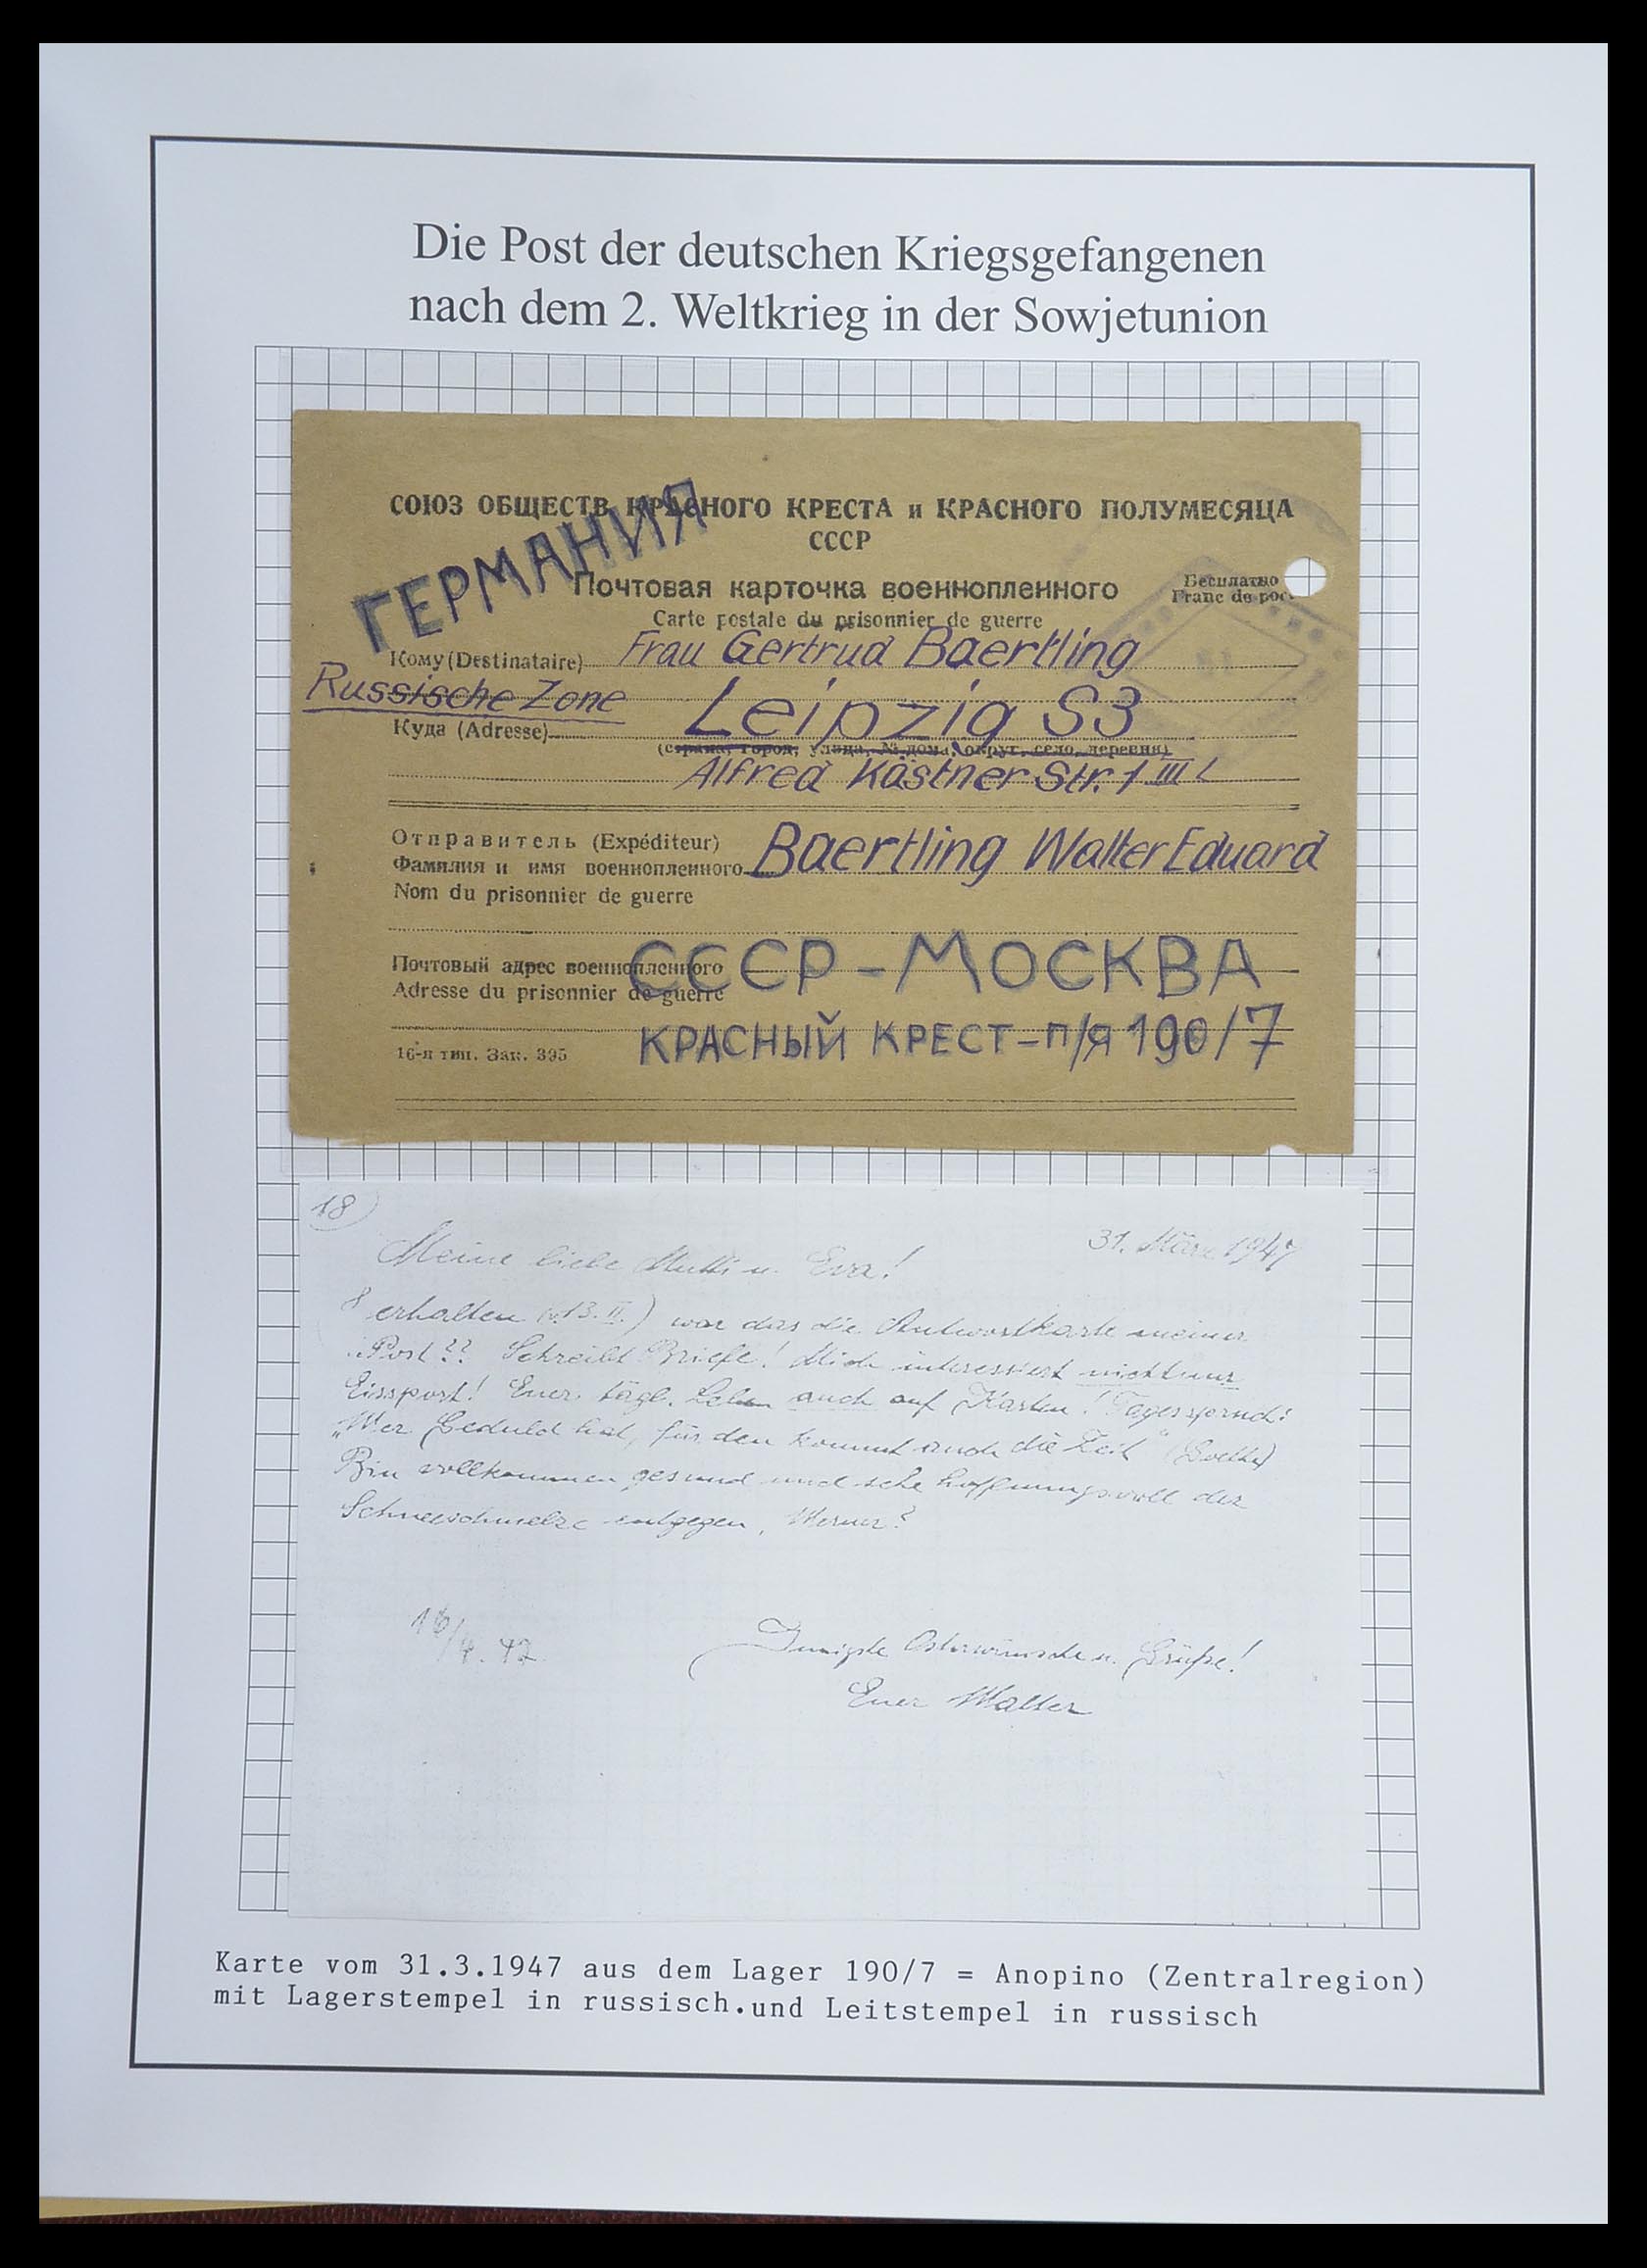 Die Post der deutschen Kriegsgefangenen
nach dem 2. Weltkrieg in der Sowjetunion
СОЮЗ ОБЩЕСТВ КРАСНОГО КРЕСТА и КРАСНОГО ПОЛУМЕСЯЦА
СССР
ГЕРМАНИЯ
Почтовая карточка военнопленного
Бесплатно
Franc de por
Carte postale du prisonnier de guerre
Кому (Destinataire) Frau Gertrud Baertling
Russische Zone
Куда (Adresse) Leipzig S3
(страна, город, улица, № дома, округ, село, деревня)
Alfred Kästner Str. 1 III L
Отправитель (Expéditeur)
Фамилия и имя военнопленного Baertling Walter Eduard
Nom du prisonnier de guerre
Почтовый адрес военнопленного СССР - МОСКВА
Adresse du prisonnier de guerre
КРАСНЫЙ КРЕСТ - п/я 190/7
16-я тип. Зак. 395
18
31. März 1947
Meine liebe Mutti u. Eva!
8 erhalten (v. 13. II.) war das die Antwortkarte meiner
Post?? Schreibt Briefe! Mich interessiert nicht nur
Eissport! Euer tägl. Leben auch auf Karten! Tagesspruch:
„Wer Geduld hat, für den kommt auch die Zeit" (Goethe)
Bin vollkommen gesund und sehe hoffnungsvoll der
Schneeschmelze entgegen, Werner?
16/4. 47
Innigste Osterwünsche u. Grüße!
Euer Walter
Karte vom 31.3.1947 aus dem Lager 190/7 = Anopino (Zentralregion)
mit Lagerstempel in russisch.und Leitstempel in russisch